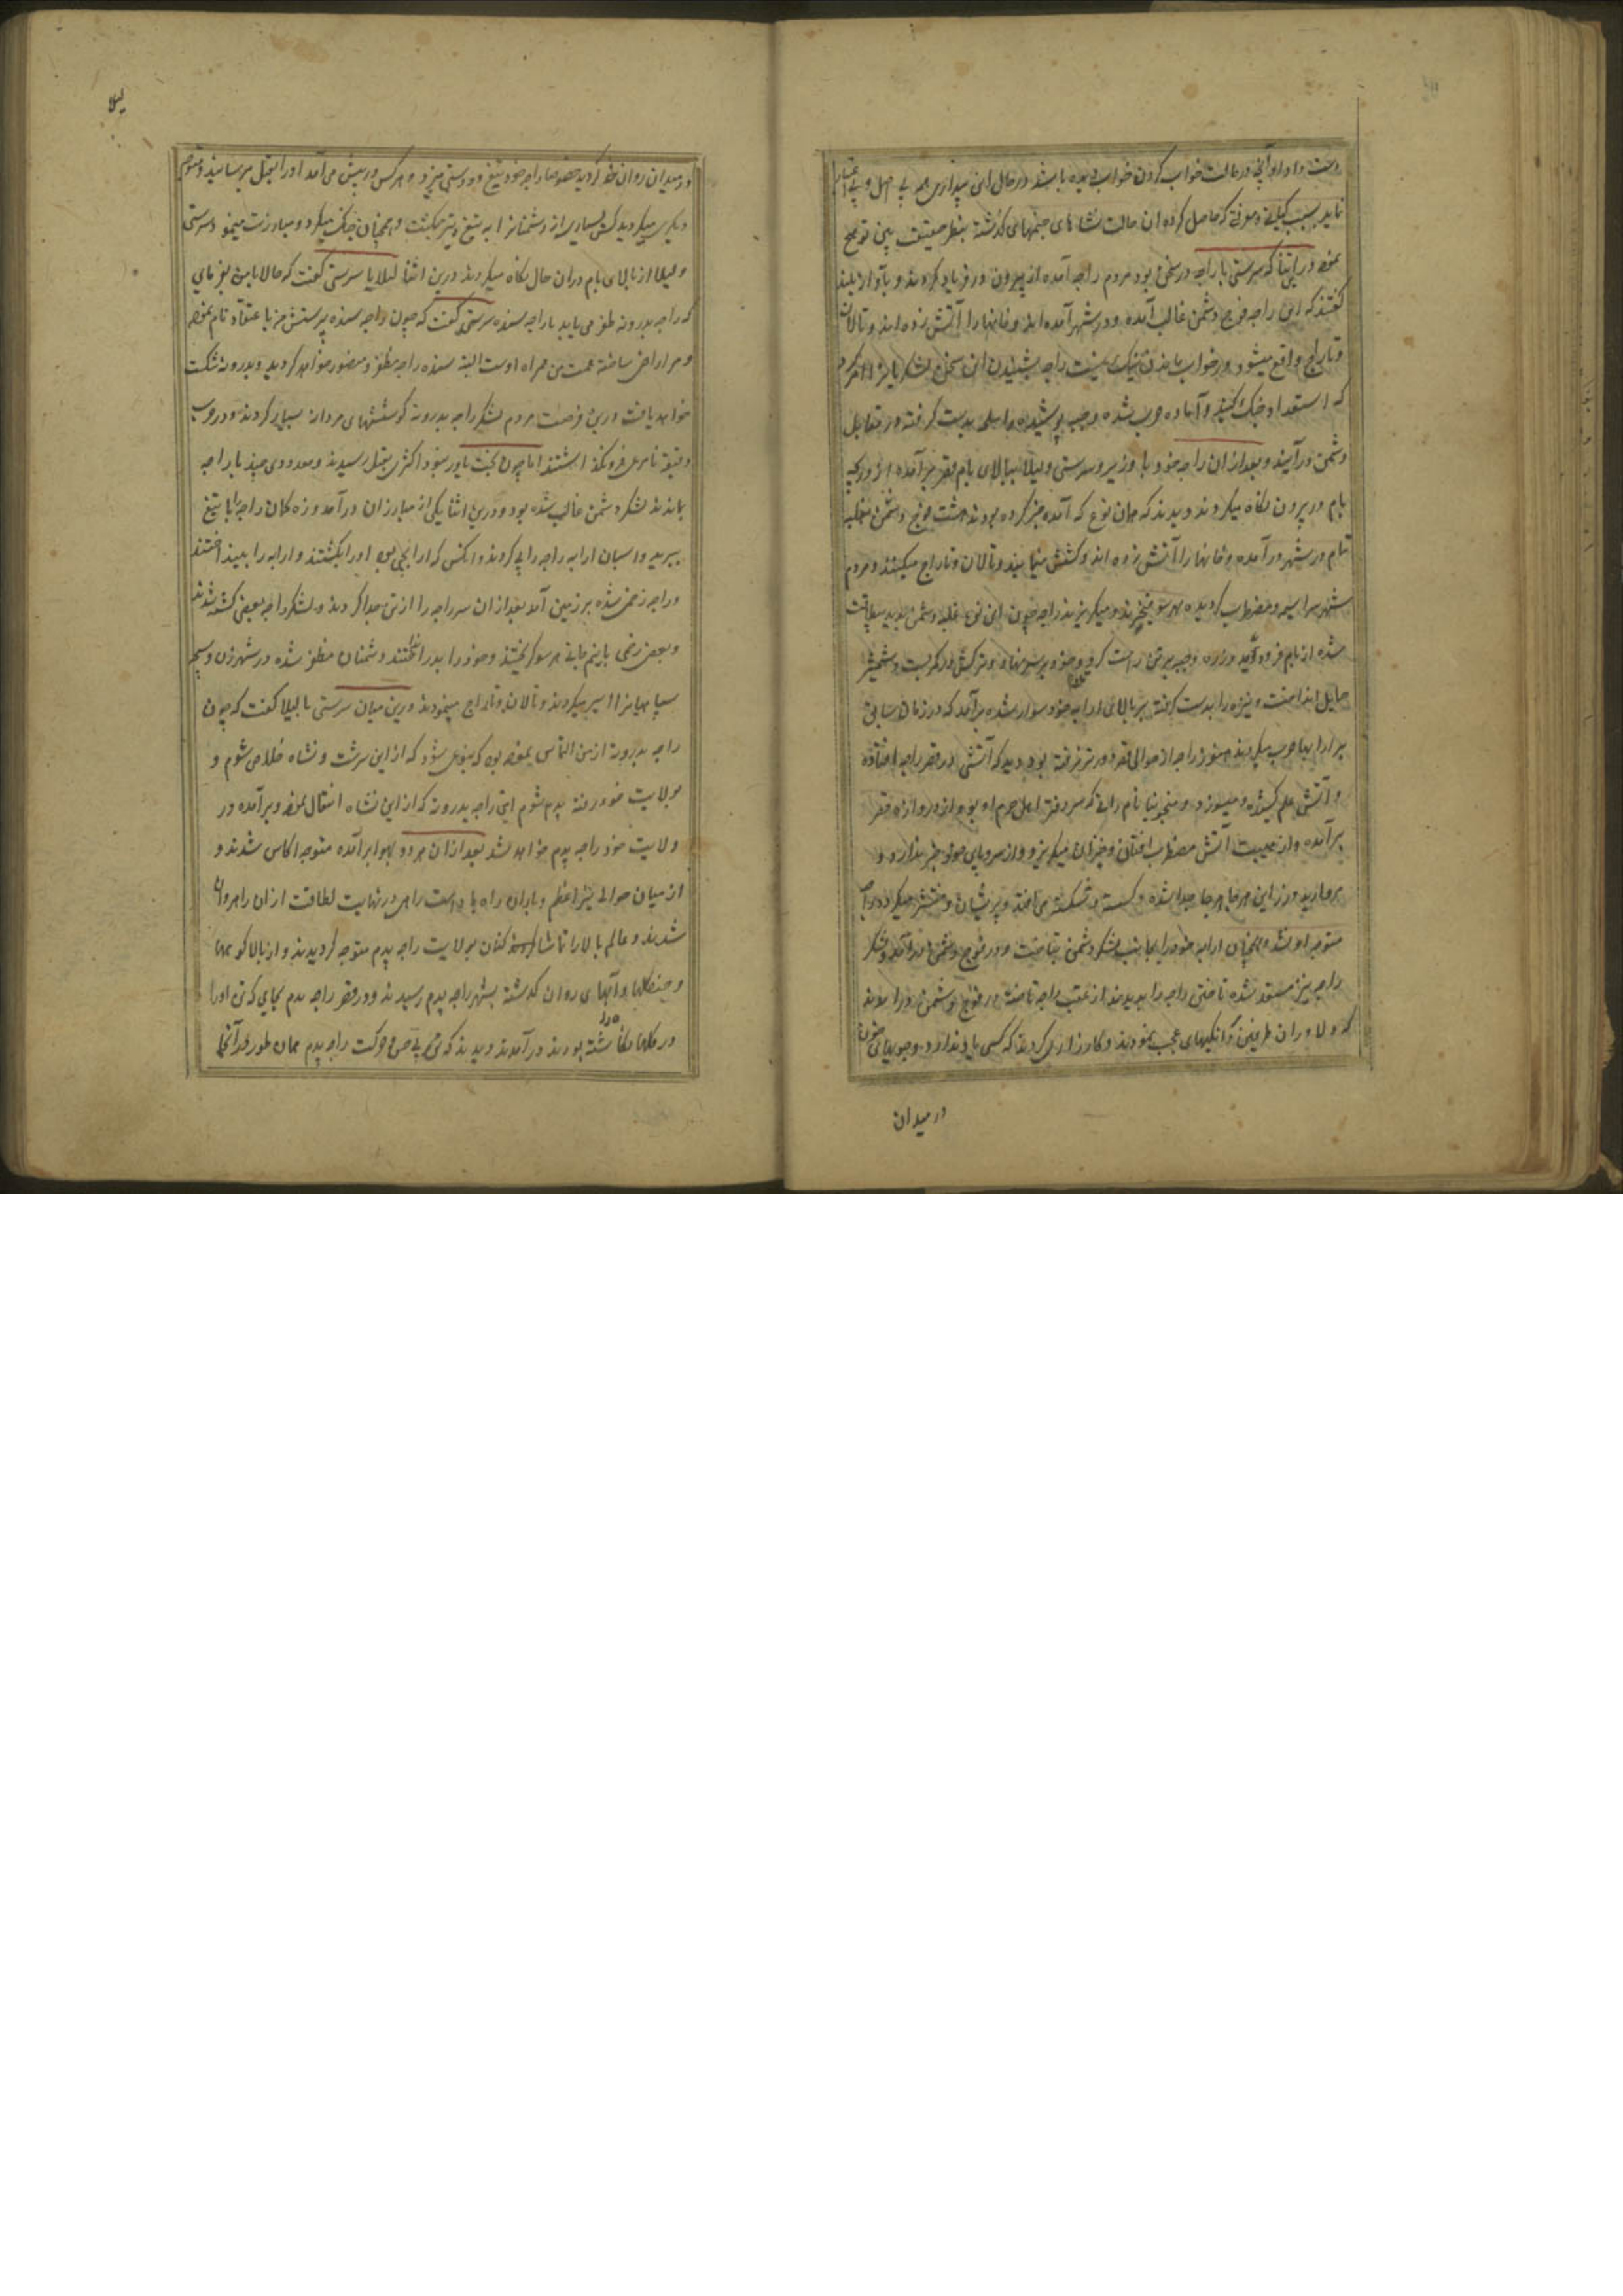 دست داد او آنچه در حالت خواب کردن خواب دیده باشد در حال این بیداری همه بی اصل و بی اعتبار
نماید بسبب کیانی و معرفتی که حاصل کرده ان حالت نشاهای جنمهای گذشته بنظر حقیقت بین تو هیچ
نمود درین اثنا که سرستی با راجه در سخن بود مردم راجه آمده از بیرون در فریاد کردند و بآواز بلند
گفتند که ای راجه فوج دشمن غالب آمده و در شهر آمده اند و خانها را آتش زده اند و تالان
و تاراج واقع میشود در خواب ماندن نیک نیست راجه بشنیدن این سخن لشکریانرا امر کرد
که استعداد جنگ کنید و آماده حرب شده و جیبه پوشیده و اسلحه بدست گرفته در مقابل
دشمن در آیید و بعد ازان راجه خود با وزیر و سرستی و لیلا ببالای بام قصر بر آمده از دریچه
بام در بیرون نگاه میکردند دیدند که همان نوع که آمده خبر کرده بودند هشت فوج دشمن بغلبه
تمام در شهر در آمده و خانها را آتش زده اند و کشش مینمایند و تالان و تاراج میکنند و مردم
شهر سراسیمه و مضطرب گردیده هر سو میخیزند و میگریزند راجه چون این نوع غلبه دشمن بدید بیطاقت
شده از بام فرود آمد و زره و جیبه بر تن راست کرد و خود بر سر نهاد و ترکش در کمر بست و شمشیر
حمایل انداخت و نیزه را بدست گرفته بر بالای ارابه خود سوار شده بر آمد که در زمان سابق
بر ارابها حرب میکردند هنوز راجه از حوالی قصر دورتر نرفته بود دید که آتش در قصر راجه افتاده
و آتش علم کشیده و میسوزد و منجونیا نام رانی که سر دفتر اهل حرم او بود از دروازه قصر
بر آمده و از هیبت آتش مضطرب افتان و خیزان میگریزد و از سر و پای خود خبر ندارد و
مروارید و زر این هر جا هر جا جدا شده و گسسته و شکسته می افتد و پریشان و منتشر میگردد راجه
متوجه او نشد و همچنان ارابه خود را بجانب لشکر دشمن بتاخت و در فوج دشمن در آمد و لشکر
راجه نیز مستعد شده تاختن راجه را بدیدند از عقب راجه تاخته در فوج دشمن در آمدند
که دلاوران طرفین مردانگیهای عجب نمودند و کارزاری کردند که کسی یاد ندارد و جویهای خون
در میدان
در میدان روان خط گردید خصوصا راجه خود تیغ دو دستی میزد و هر کس در پیش می آمد او را بقتل میرسانید و متوجه
دیگری میگردید کسی بسیاری از دشمنانرا به تیغ و تیر میکشت و همچنان جنگ میکرد و مبارزت مینمود سرستی
و لیلا از بالای بام دران حال نگاه میکردند درین اثنا لیلا با سرستی گفت که حالا با من بفرمای
که راجه بدروته ظفر می یابد یا راجه سنده سرستی گفت که چون راجه سنده پرستش مرا با عتقاد تمام نموده
و مرا راضی ساخته همت من همراه اوست البته سنده راجه مظفر و منصور خواهد گردید و بدروته شکست
خواهد یافت درین فرصت مردم لشکر راجه بدروته کوششهای مردانه بسیار کردند و در حرب
دقیقه نامرعی فرو نگذاشتند اما چون بخت یاور نبود اکثری بقتل رسیدند و معدودی چند با راجه
ماندند لشکر دشمن غالب شده بود و درین اثنا یکی از مبارزان در آمد و زه کمان راجه را با تیغ
ببرید و اسبان ارابه راجه را پی کردند و آنکس که ارابچی بود او را بکشتند و ارابه را بینداختند
و راجه زخمی شده بر زمین آمد بعد ازان سر راجه را از تن جدا کردند و لشکر راجه بعضی کشته شدند
و بعضی زخمی با نیم جانی هر سو گریختند و خود را بدر انداختند و دشمنان مظفر شده در شهر زن و بچه
سپاهیانرا اسیر میکردند و تالان و تاراج مینمودند درین میان سرستی با لیلا گفت که چون
راجه بدروته از من التماس نموده بود که بنوعی شود که از این سرشت و نشاه خلاص شوم و
بولایت خود رفته پدم شوم این راجه بدروته که از این نشاه انتقال نموده و بر آمده در
ولایت خود راجه پدم خواهد شد بعد ازان هر دو بهوا بر آمده متوجه اکاس شدند و
از میان حوالی نیر اعظم و باران راه با دست راهی در نهایت لطافت ازان راه روان
شدند و عالم بالا را تماشا کنان بولایت راجه پدم متوجه گردیدند و از بالا کوهها
و جنگلها و آبهای روان گذشته بشهر راجه پدم رسیدند و در قصر راجه پدم بجای که تن او را
در گلها نگاه داشته بودند در آمدند و دیدند که تن بی حس و حرکت راجه پدم همان طور در آنجا